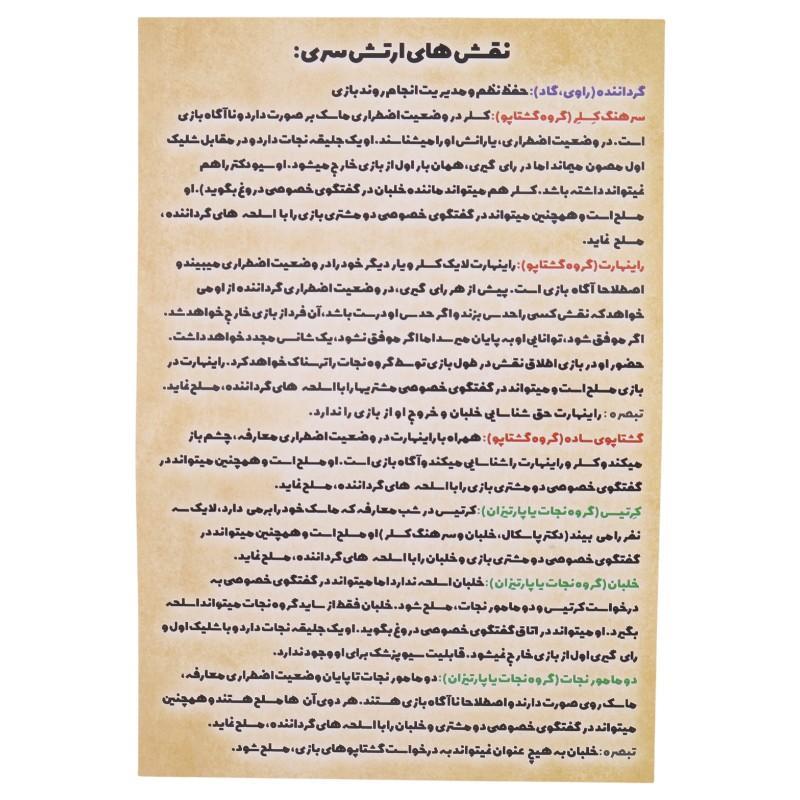 نقش های ارتش سری:
گرداننده (راوی، گاد): حفظ نظم و مدیریت انجام روند بازی
سرهنگ کِلِر (گروه گشتاپو): کلر در وضعیت اضطراری ماسک بر صورت دارد و ناآگاه بازی
است. در وضعیت اضطراری، یارانش او را میشناسند. او یک جلیقه نجات دارد و در مقابل شلیک
اول مصون میماند اما در رای گیری، همان بار اول از بازی خارج میشود. او سیو دکتر را هم
نمیتواند داشته باشد. کلر هم میتواند مانند خلبان در گفتگوی خصوصی دروغ بگوید). او
مسلح است و همچنین میتواند در گفتگوی خصوصی دو مشتری بازی را با اسلحه های گرداننده،
مسلح نماید.
راینهارت (گروه گشتاپو): راینهارت لایک کلر و یار دیگر خود را در وضعیت اضطراری میبیند و
اصطلاحا آگاه بازی است. پیش از هر رای گیری، در وضعیت اضطراری گرداننده از او می
خواهد که نقش کسی را حدس بزند و اگر حدس او درست باشد، آن فرد از بازی خارج خواهد شد.
اگر موفق شود، توانایی او به پایان میرسد اما اگر موفق نشود، یک شانس مجدد خواهد داشت.
حضور او در بازی اطلاق نقش در طول بازی توسط گروه نجات را ترسناک خواهد کرد. راینهارت در
بازی مسلح است و میتواند در گفتگوی خصوصی مشتریها را با اسلحه های گرداننده، مسلح نماید.
تبصره: راینهارت حق شناسایی خلبان و خروج او از بازی را ندارد.
گشتاپوی ساده (گروه گشتاپو): همراه با راینهارت در وضعیت اضطراری معارفه، چشم باز
میکند و کلر و راینهارت را شناسایی میکند و آگاه بازی است. او مسلح است و همچنین میتواند در
گفتگوی خصوصی دو مشتری بازی را با اسلحه های گرداننده، مسلح نماید.
کِرتیس (گروه نجات یا پارتیزان): کرتیس در شب معارفه که ماسک خود را برمی دارد، لایک سه
نفر را می بیند (دکتر پاسکال، خلبان و سرهنگ کلر) او مسلح است و همچنین میتواند در
گفتگوی خصوصی دو مشتری بازی و خلبان را با اسلحه های گرداننده، مسلح نماید.
خلبان (گروه نجات یا پارتیزان): خلبان اسلحه ندارد اما میتواند در گفتگوی خصوصی به
درخواست کرتیس و دو مامور نجات، مسلح شود. خلبان فقط از ساید گروه نجات میتواند اسلحه
بگیرد. او میتواند در اتاق گفتگوی خصوصی دروغ بگوید. او یک جلیقه نجات دارد و با شلیک اول و
رای گیری اول از بازی خارج نمیشود. قابلیت سیو پزشک برای او وجود ندارد.
دو مامور نجات (گروه نجات یا پارتیزان): دو مامور نجات تا پایان وضعیت اضطراری معارفه،
ماسک روی صورت دارند و اصطلاحا ناآگاه بازی هستند. هر دوی آن ها مسلح هستند و همچنین
میتوانند در گفتگوی خصوصی دو مشتری و خلبان را با اسلحه های گرداننده، مسلح نماید.
تبصره: خلبان به هیچ عنوان نمیتواند به درخواست گشتاپوهای بازی، مسلح شود.